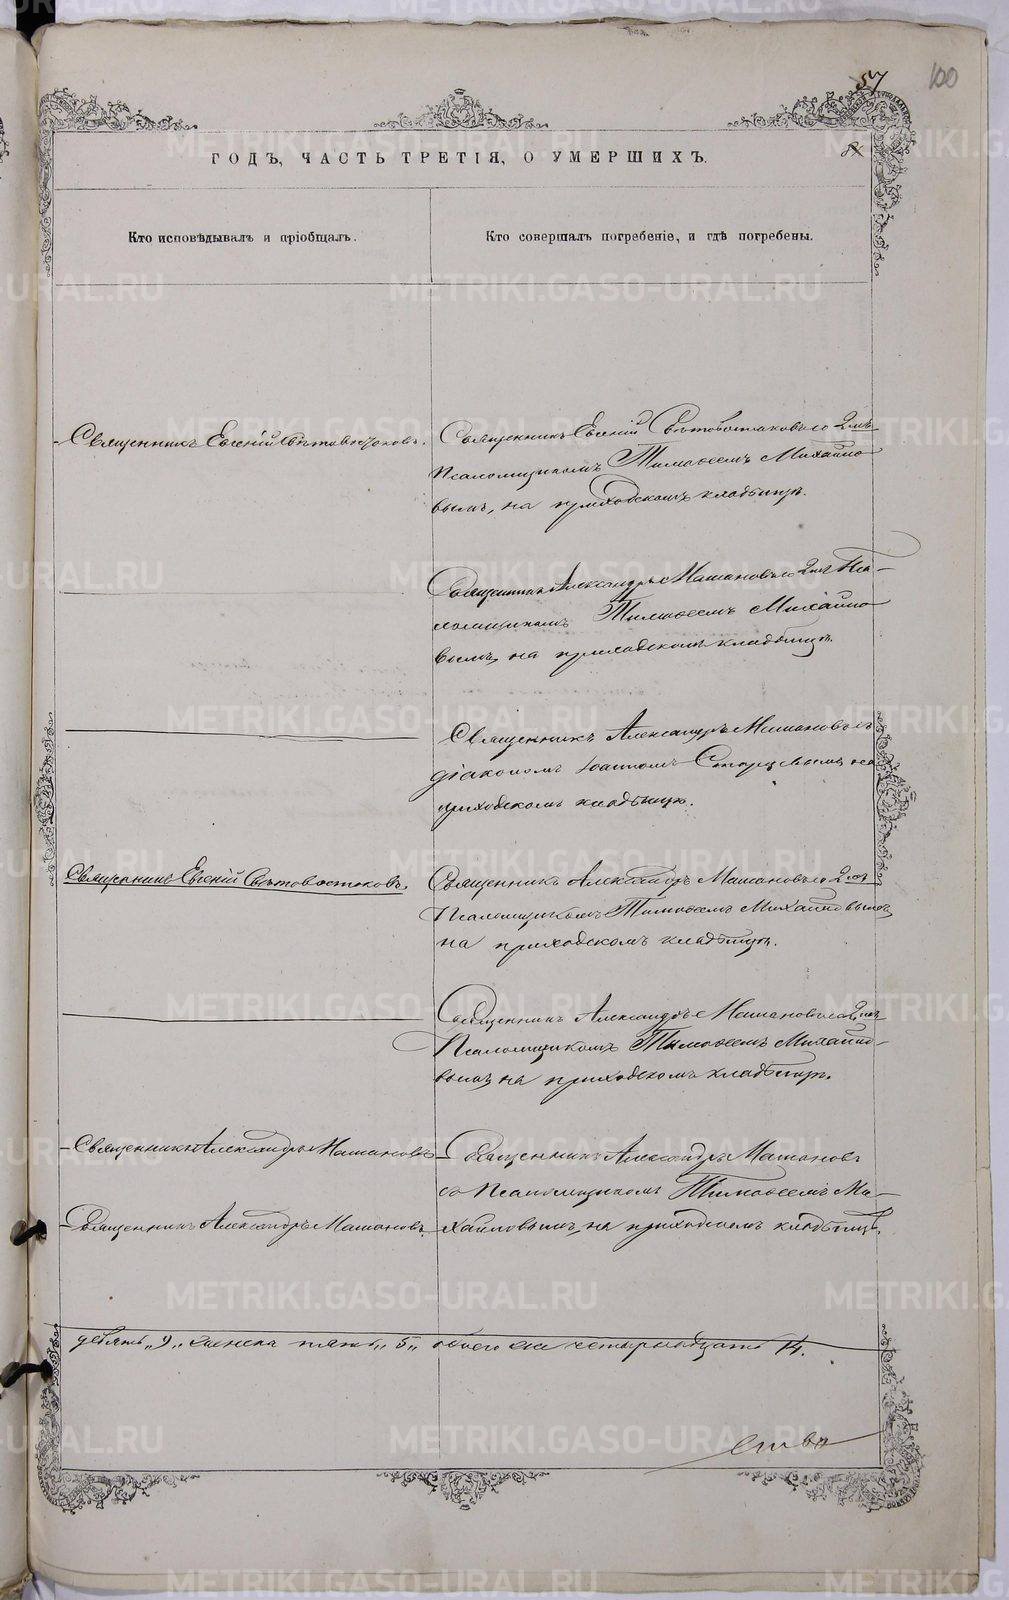 57
100
ГОДЪ, ЧАСТЬ ТРЕТІЯ, О УМЕРШИХЪ.
Кто исповѣдывалъ и пріобщалъ.
Кто совершалъ погребеніе, и гдѣ погребены.
Священникъ Евгеній Свѣтовостоковъ.
Священникъ Евгеній Свѣтовостоковъ со 2мъ
Псаломщикомъ Тимоѳеемъ Михайло
вымъ, на приходскомъ кладбищѣ.
Священникъ Александръ Мамановъ со 2мъ Пса-
ломщикомъ Тимоѳеемъ Михайло
вымъ, на приходскомъ кладбищѣ.
Священникъ Александръ Мамановъ съ
діакономъ Іоанномъ Старцевымъ на
приходскомъ кладбищѣ.
Священникъ Евгеній Свѣтовостоковъ.
Священникъ Александръ Мамановъ со 2мъ
Псаломщикомъ Тимоѳеемъ Михайловымъ,
на приходскомъ кладбищѣ.
Священникъ Александръ Мамановъ со 2мъ
Псаломщикомъ Тимоѳеемъ Михайло-
вымъ на приходскомъ кладбищѣ.
Священникъ Александръ Мамановъ
Священникъ Александръ Мамановъ
съ Псаломщикомъ Тимоѳеемъ Ми-
Священникъ Александръ Мамановъ.
хайловымъ, на приходскомъ кладбищѣ.
девять „9„ женска пять „5„ обоего же четырнадцать 14.
METRIKI.GASO-URAL.RU